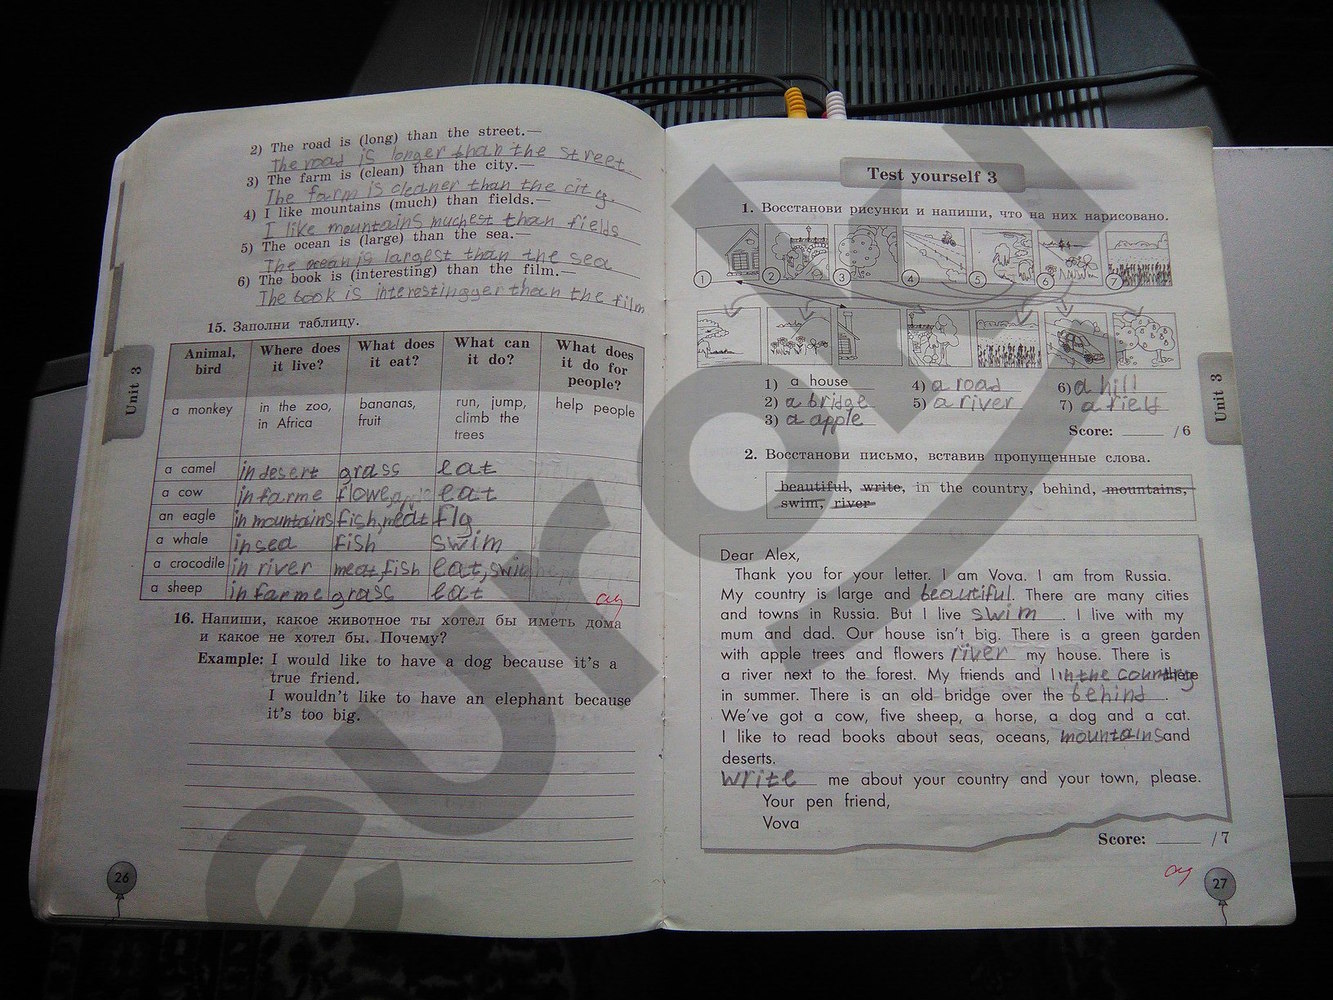 2) The road is (long) than the street.—
The road is longer than the street
3) The farm is (clean) than the city.—
The farm is cleaner than the city.
4) I like mountains (much) than fields.—
I like mountains muchest than fields
5) The ocean is (large) than the sea.—
The ocean is largest than the sea
6) The book is (interesting) than the film.—
The book is interestingger than the film
15. Заполни таблицу.
Animal, bird | Where does it live? | What does it eat? | What can it do? | What does it do for people?
a monkey | in the zoo, in Africa | bananas, fruit | run, jump, climb the trees | help people
a camel | in desert | grass | eat
a cow | in farme | flowe | eat
an eagle | in mountains | fish, meat | fly
a whale | in sea | fish | swim
a crocodile | in river | meat, fish | eat, swim
a sheep | in farme | grass | eat
16. Напиши, какое животное ты хотел бы иметь дома
и какое не хотел бы. Почему?
Example: I would like to have a dog because it's a
true friend.
I wouldn't like to have an elephant because
it's too big.
Unit 3
26
Test yourself 3
1. Восстанови рисунки и напиши, что на них нарисовано.
1 2 3 4 5 6 7
1) a house 4) a road 6) a hill
2) a bridge 5) a river 7) a field
3) a apple
Score: /6
2. Восстанови письмо, вставив пропущенные слова.
beautiful, write, in the country, behind, mountains,
swim, river
Dear Alex,
Thank you for your letter. I am Vova. I am from Russia.
My country is large and beautiful. There are many cities
and towns in Russia. But I live swim. I live with my
mum and dad. Our house isn't big. There is a green garden
with apple trees and flowers river my house. There is
a river next to the forest. My friends and I in the country there
in summer. There is an old bridge over the behind.
We've got a cow, five sheep, a horse, a dog and a cat.
I like to read books about seas, oceans, mountains and
deserts.
write me about your country and your town, please.
Your pen friend,
Vova
Score: /7
Unit 3
27
euroki